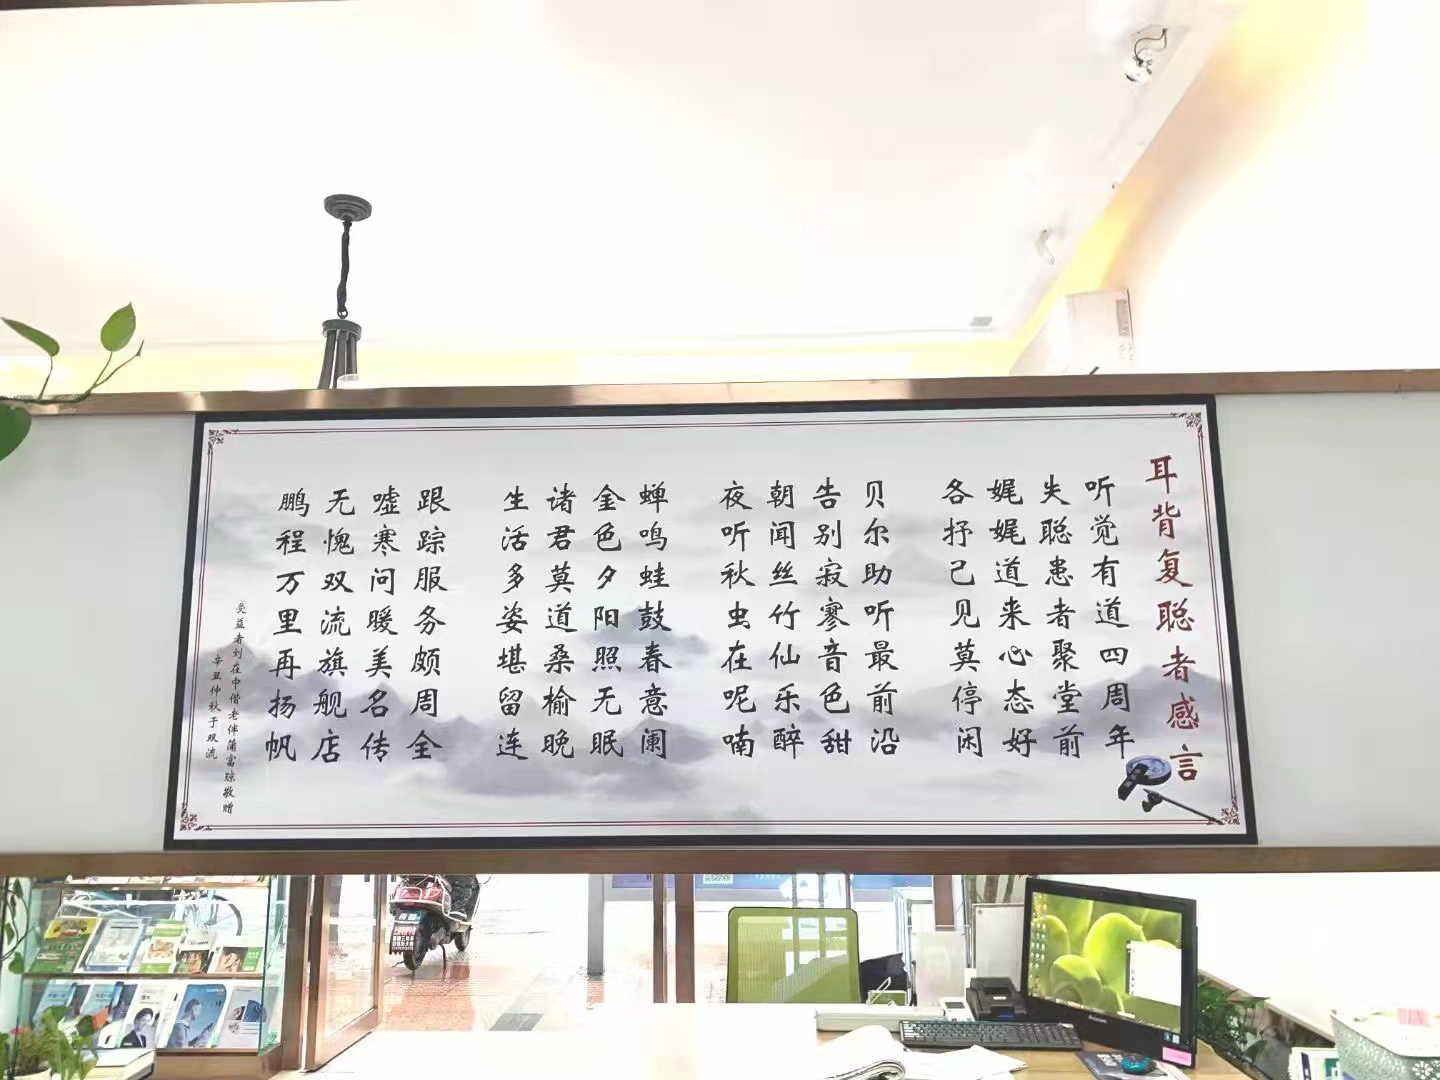 耳背复聪者感言
听觉有道四周年
失聪患者聚堂前
娓娓道来心态好
各抒己见莫停闲
贝尔助听最前沿
告别寂寥音色甜
朝闻丝竹仙乐醉
夜听秋虫在呢喃
蝉鸣蛙鼓春意阑
金色夕阳照无眠
诸君莫道桑榆晚
生活多姿堪留连
跟踪服务颇周全
嘘寒问暖美名传
无愧双流旗舰店
鹏程万里再扬帆
受益者刘在中偕老伴蒲富琼敬赠
辛丑仲秋于双流